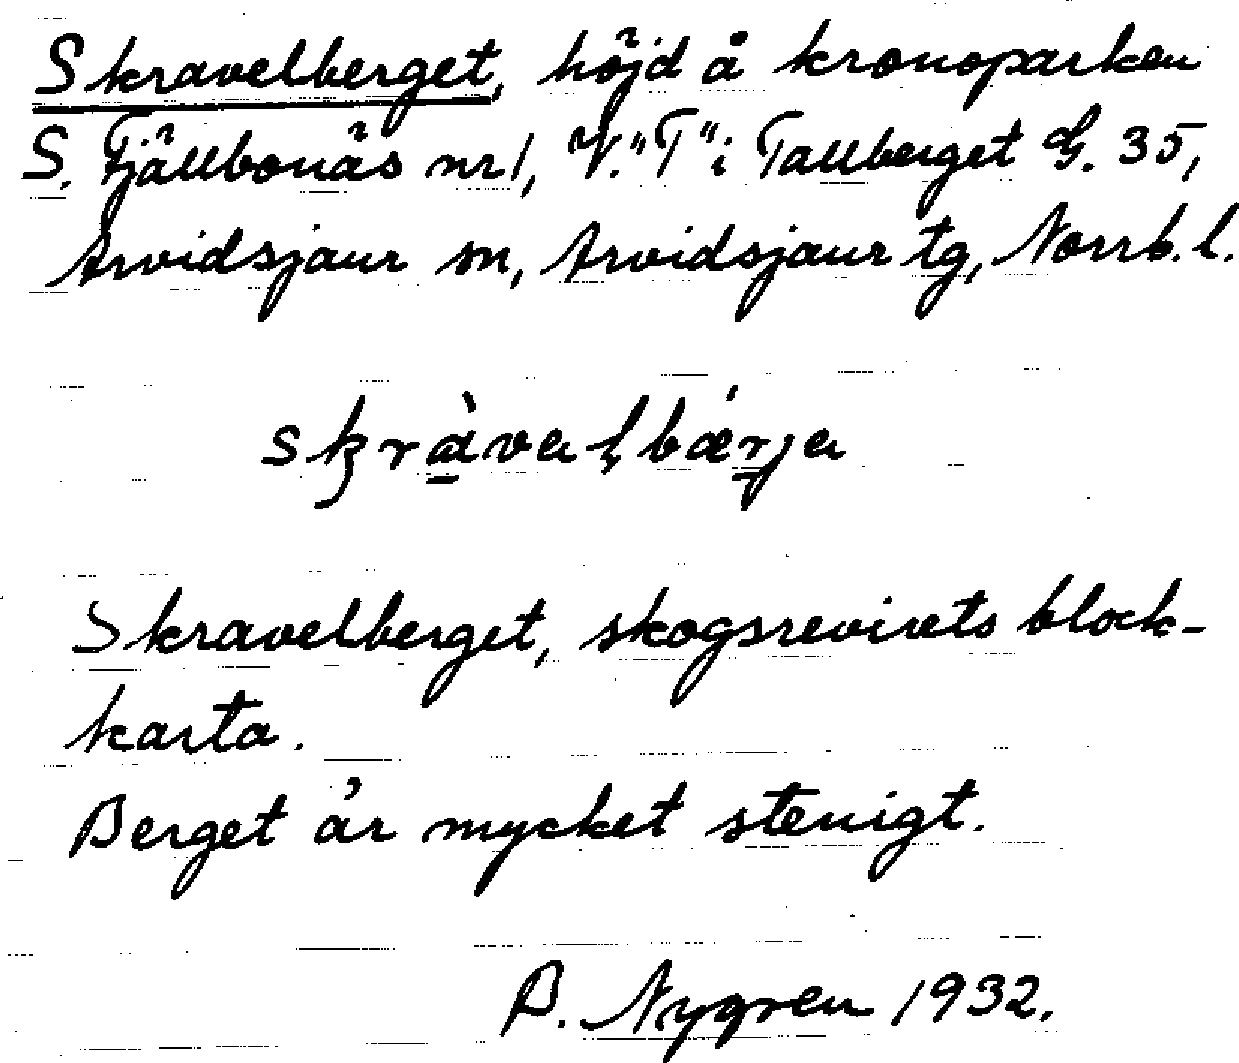 Skravelberget, höjd å kronoparken
S. Fjällbonäs nr 1, V. "T" i Tallberget G. 35,
Arvidsjaur sn, Arvidsjaur tg, Norrb. l.
skràvalbǽrja
Skravelberget, skogsrevirets block-
karta.
Berget är mycket stenigt.
B. Nygren 1932.